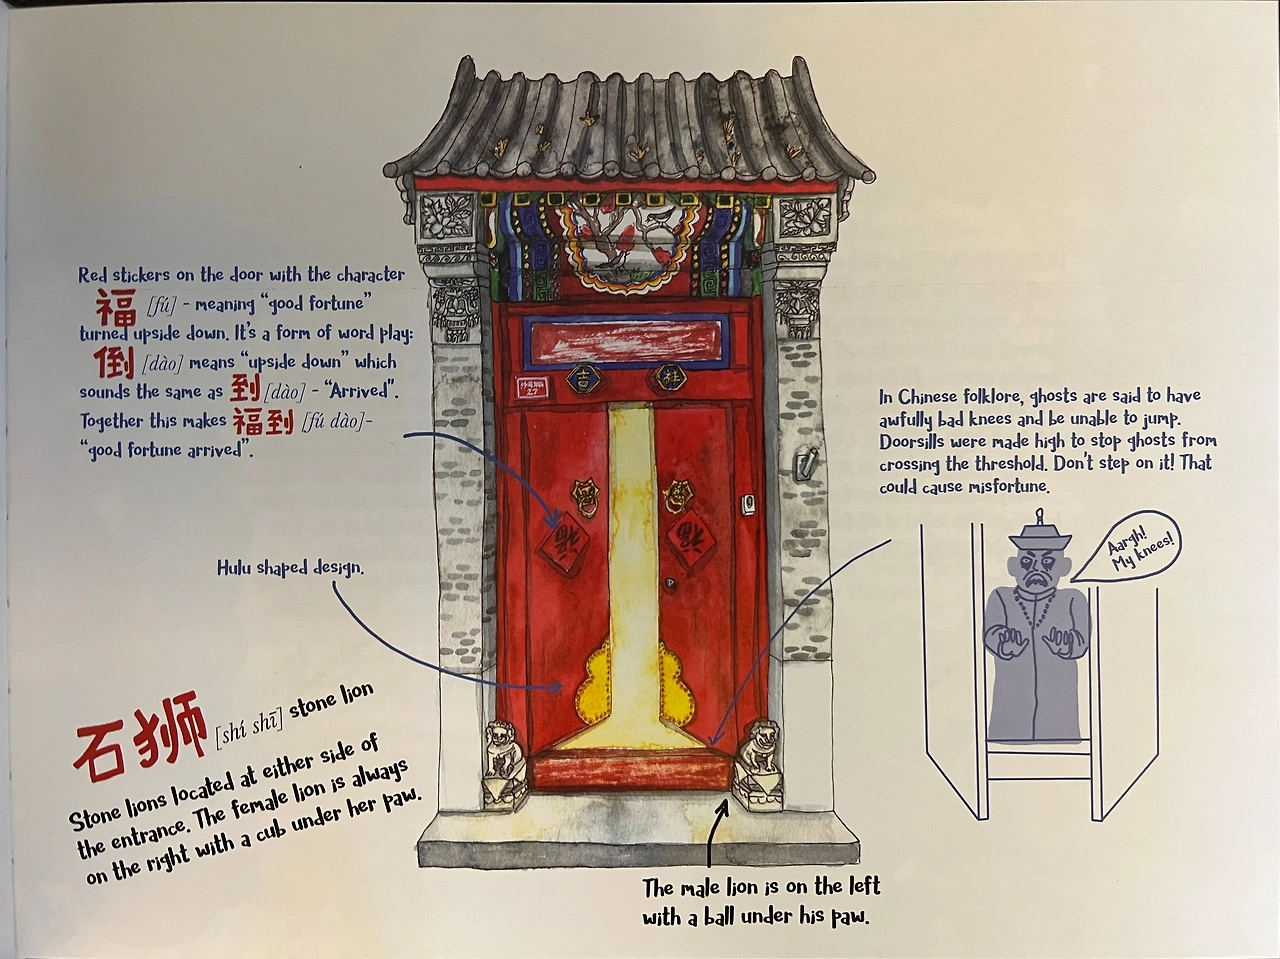 Red stickers on the door with the character
福 [fú] - meaning "good fortune"
turned upside down. It's a form of word play:
倒 [dào] means "upside down" which
sounds the same as 到 [dào] - "Arrived".
Together this makes 福到 [fú dào]-
"good fortune arrived".
Hulu shaped design.
石狮 [shí shī] stone lion
Stone lions located at either side of
the entrance. The female lion is always
on the right with a cub under her paw.
吉
祥
27
福
福
The male lion is on the left
with a ball under his paw.
In Chinese folklore, ghosts are said to have
awfully bad knees and be unable to jump.
Doorsills were made high to stop ghosts from
crossing the threshold. Don't step on it! That
could cause misfortune.
Aargh!
My knees!